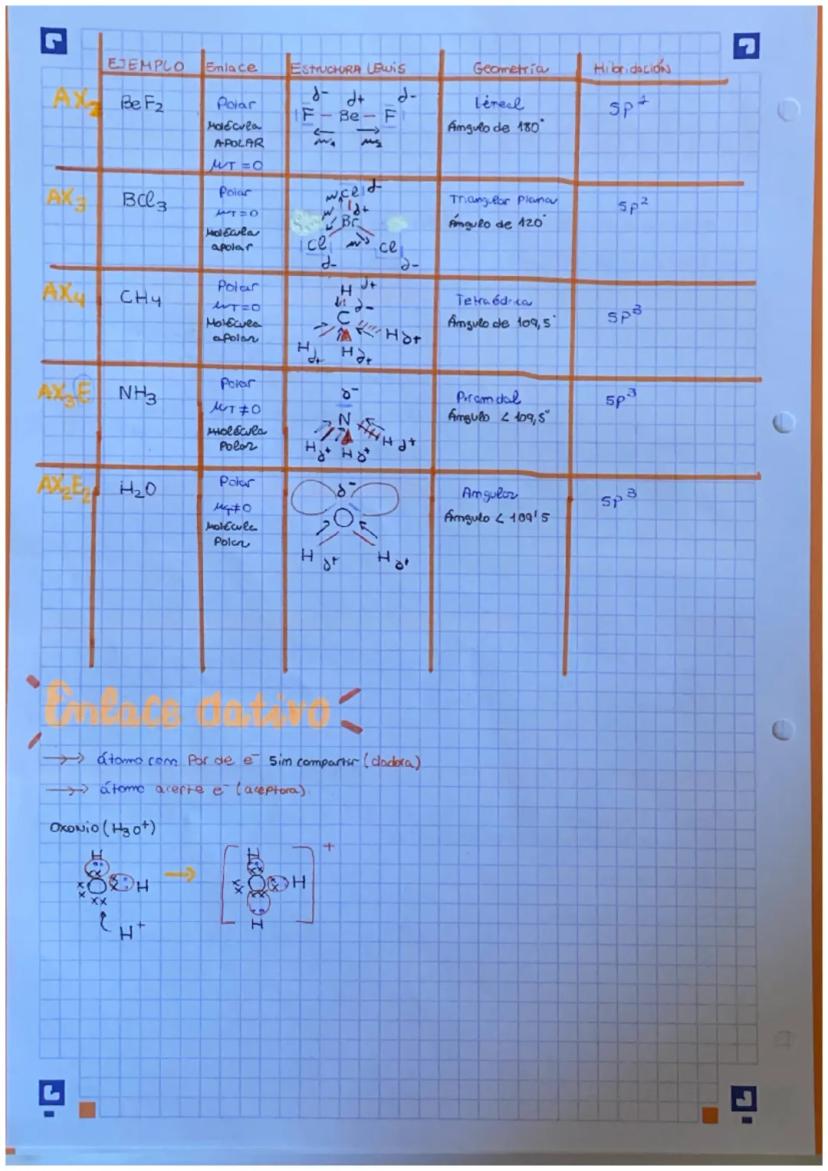 EJEMPLO Enlace ESTRUCTURA LEWIS Geometría Hibridación
AX2 BeF2 Polar Molécula APOLAR μT = 0
δ- δ+ δ-
F - Be - F
μ1 μ2
Lineal Ángulo de 180° sp
AX3 BCl3 Polar μT = 0 Molécula apolar
Cl δ-
δ+
Br
Cl Cl
δ- δ-
Triangular Plana Ángulo de 120° sp2
AX4 CH4 Polar μT = 0 Molécula apolar
H δ+
δ-
C
H H H δ+
δ+ δ+
Tetraédrica Ángulo de 109,5° sp3
AX3E NH3 Polar μT ≠ 0 Molécula Polar
δ-
N
H δ+ H δ+ H δ+
Piramidal Ángulo < 109,5° sp3
AX2E2 H2O Polar μT ≠ 0 Molécula Polar
δ-
O
H δ+ H δ+
Angular Ángulo < 109'5 sp3
Enlace dativo
→ átomo con Par de e- Sin compartir (dadora)
→ átomo acepte e- (aceptora)
Oxonio (H3O+)
H H +
O H → O H
H+ H